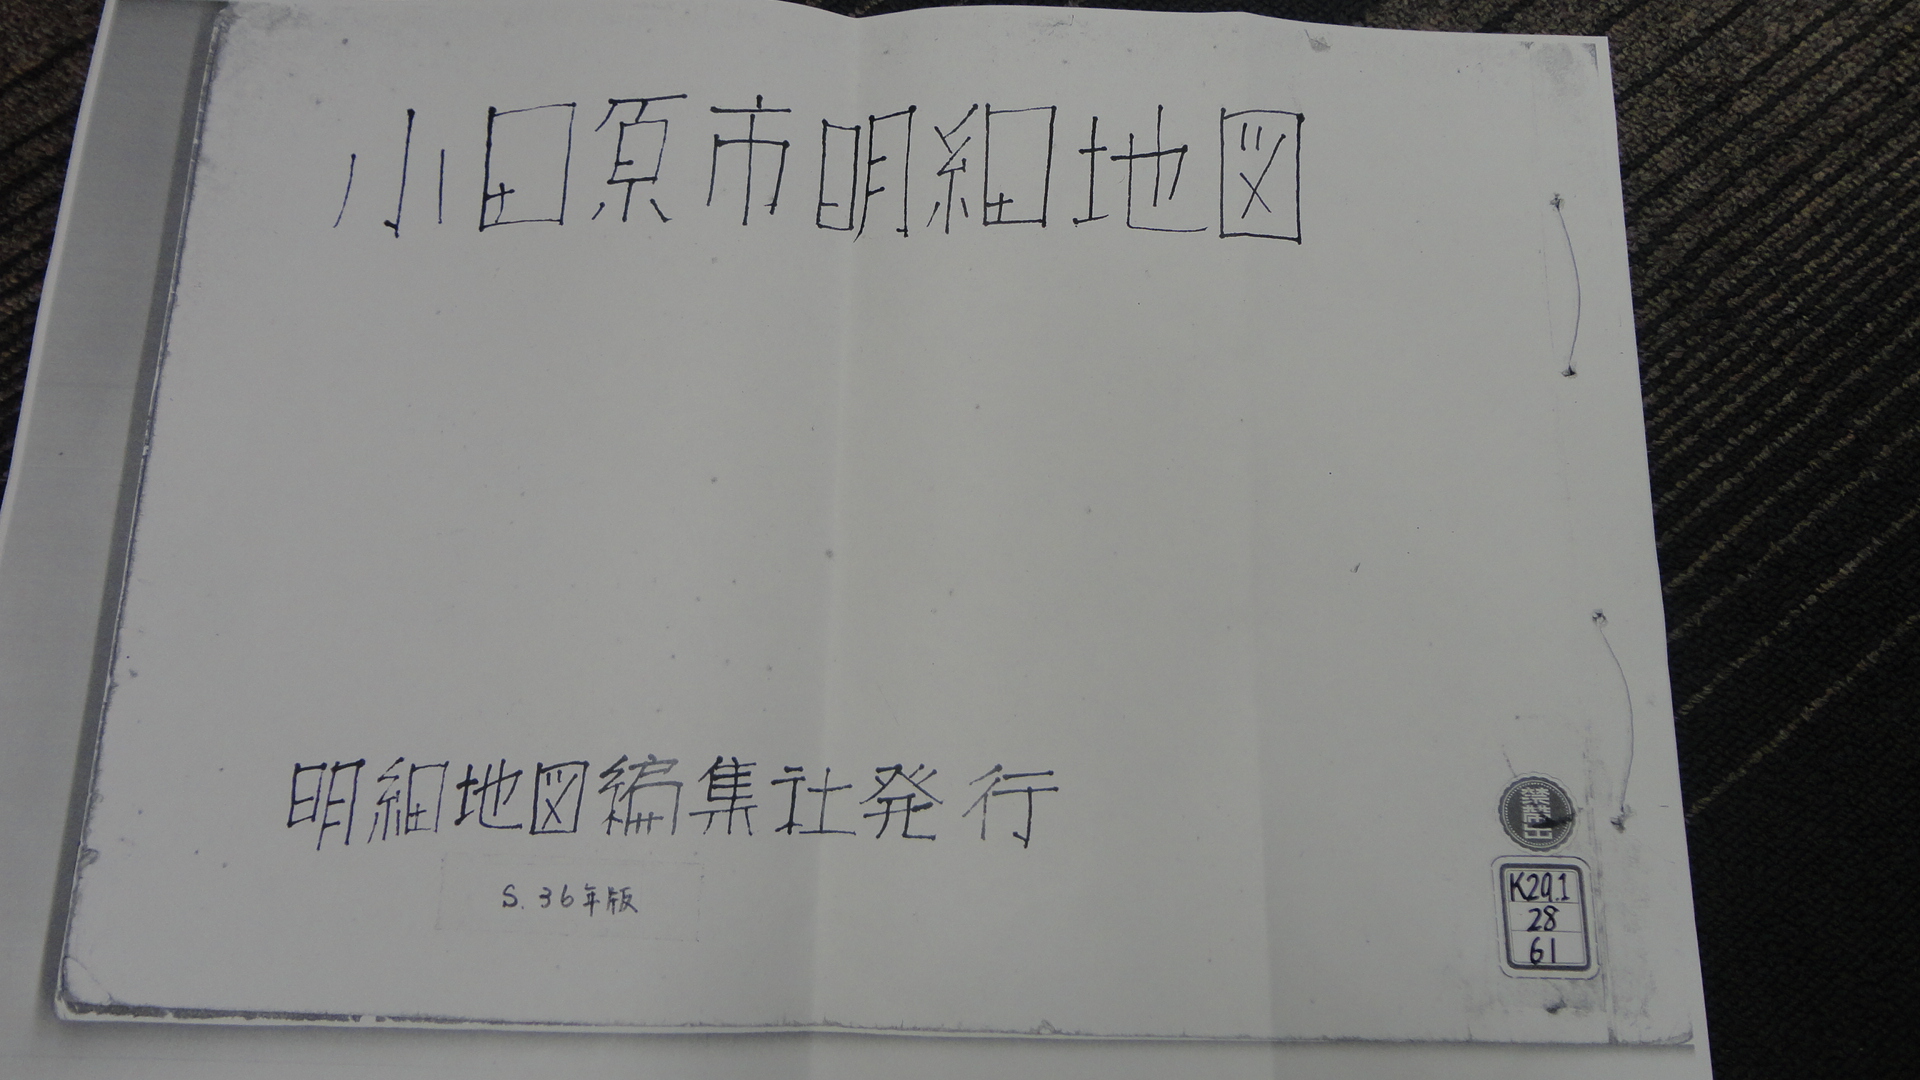 小田原市明細地図
明細地図編集社発行
S. 36年版
禁帯出
K29.1
28
61